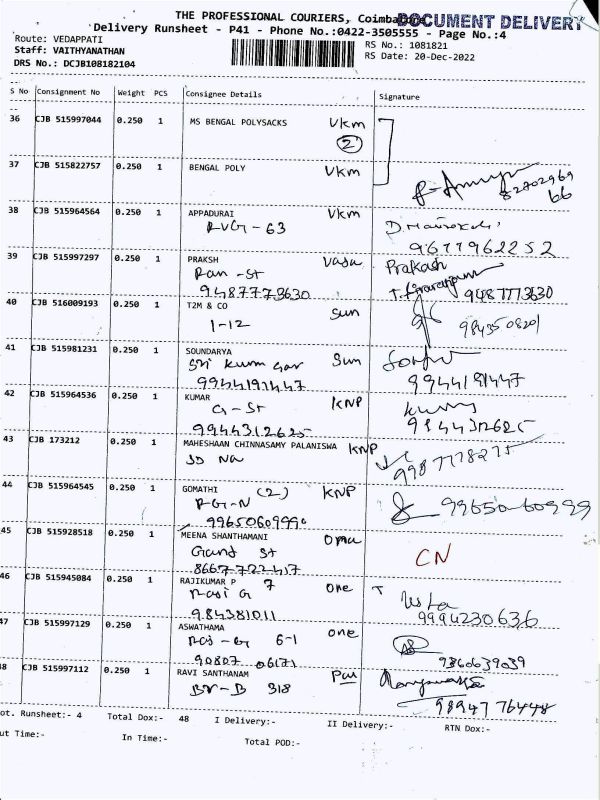 THE PROFESSIONAL COURIERS, Coimbatore
DOCUMENT DELIVERY
Delivery Runsheet - P41 - Phone No.:0422-3505555 - Page No.:4
Route: VEDAPPATI
RS No.: 1081821
Staff: VAITHYANATHAN
RS Date: 20-Dec-2022
DRS No.: DCJB108182104
S No Consignment No Weight PCS Consignee Details Signature
36 CJB 515997044 0.250 1 MS BENGAL POLYSACKS Vkm
(2)
37 CJB 515822757 0.250 1 BENGAL POLY Vkm
82702969
66
38 CJB 515964564 0.250 1 APPADURAI Vkm
RVG - 63
9677962252
39 CJB 515997297 0.250 1 PRAKSH Prakash
Ran - St
9487773630 9487773630
40 CJB 516009193 0.250 1 T2M & CO Sun
1-12 984350820/
41 CJB 515981231 0.250 1 SOUNDARYA Sun
Sri Kum Gar
9944191447 9944191447
42 CJB 515964536 0.250 1 KUMAR KNP
G - St
9944312625 9944312625
43 CJB 173212 0.250 1 MAHESHAAN CHINNASAMY PALANISWA KNP
JD Na 9987778275
44 CJB 515964545 1 GOMATHI (2) KNP
RG-N 9965060999
9965060999
45 CJB 515928518 0.250 1 MEENA SHANTHAMANI
Gand St CN
8667722417
46 CJB 515945084 0.250 1 RAJIKUMAR P 7 one
Rasi G
984381011 9994230636
47 CJB 515997129 0.250 1 ASWATHAMA one
6-1
90807 06171 9360639039
48 CJB 515997112 0.250 1 RAVI SANTHANAM
Br-B 318
9894776448
ot. Runsheet:- 4 Total Dox:- 48 I Delivery:- II Delivery:- RTN Dox:-
ut Time:- In Time:- Total POD:-